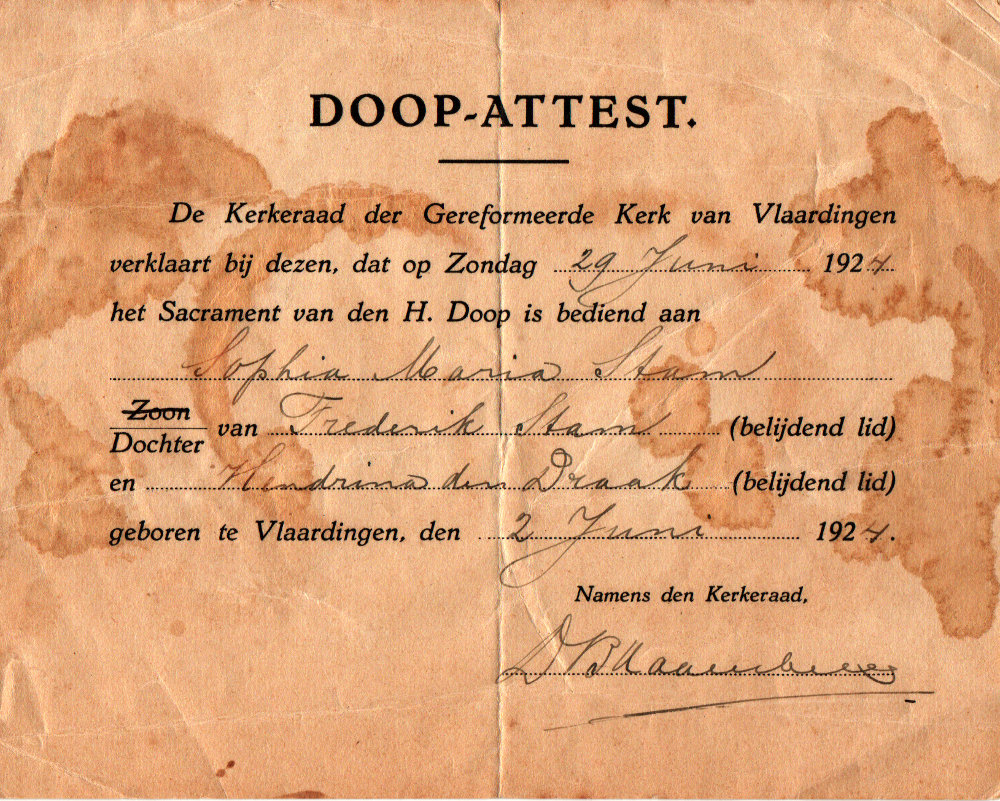 DOOP-ATTEST.
De Kerkeraad der Gereformeerde Kerk van Vlaardingen
verklaart bij dezen, dat op Zondag 29 Juni 1924
het Sacrament van den H. Doop is bediend aan
Sophia Maria Stam
Zoon
Dochter van Frederik Stam (belijdend lid)
en Hendrina den Draak (belijdend lid)
geboren te Vlaardingen, den 2 Juni 1924.
Namens den Kerkeraad,